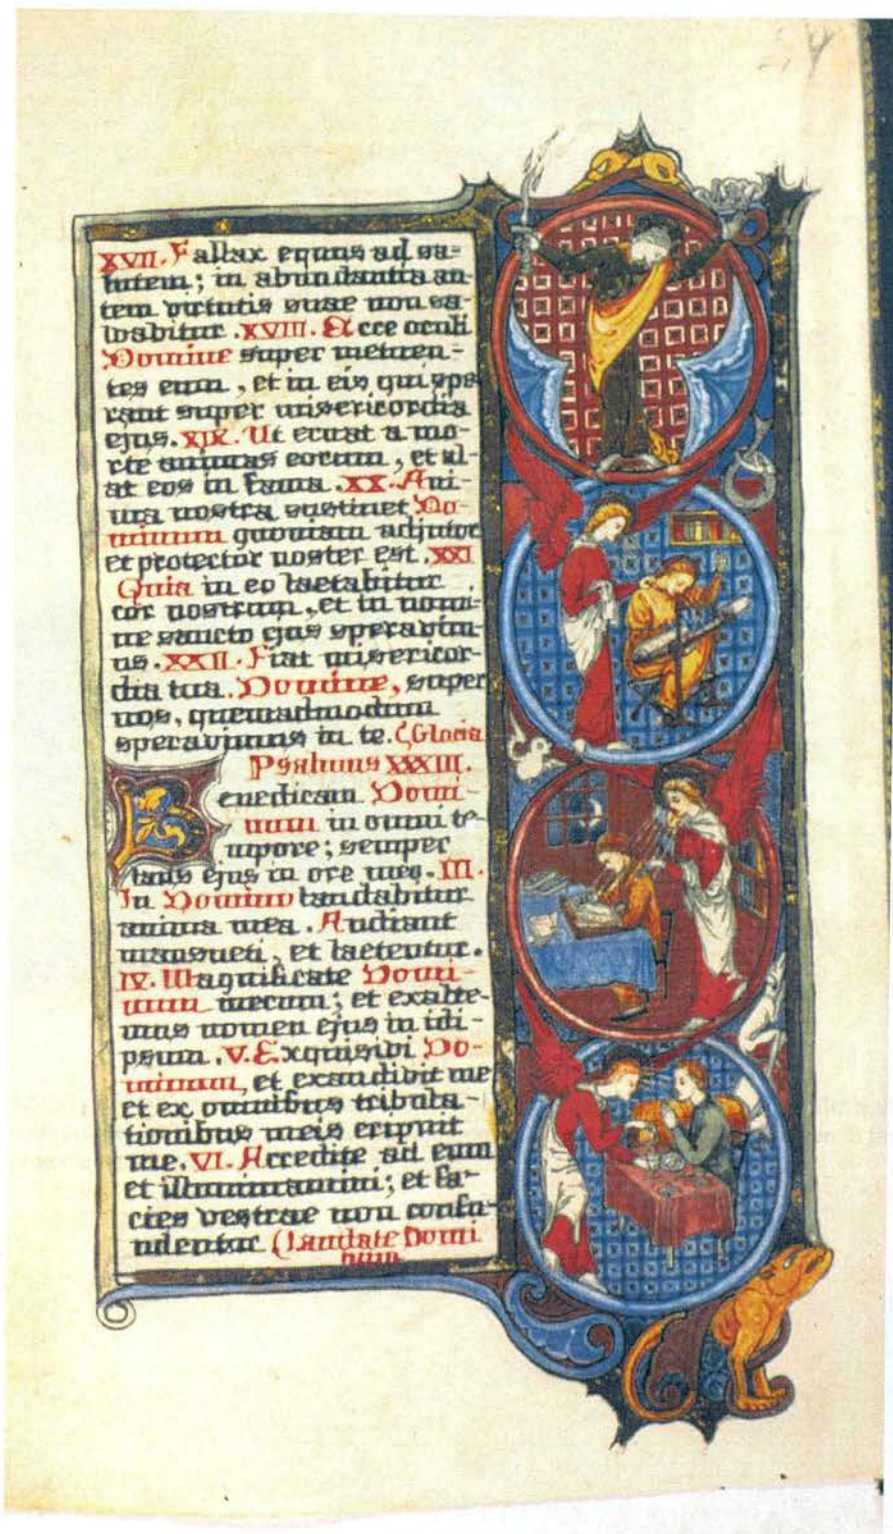 XVII. Fallax equus ad sa-
lutem; in abundantia au-
tem virtutis suae non sa-
lvabitur. XVIII. Ecce oculi
Domine super metuen-
tes eum, et in eis qui spe
rant super misericordia
ejus. XIX. Ut eruat a mo-
rte animas eorum, et al-
at eos in fama. XX. Ani-
ma nostra sustinet Do-
minum quoniam adjutor
et protector noster est. XXI
Quia in eo laetabitur
cor nostrum, et in nomi-
ne sancto ejus speravim-
us. XXII. Fiat misericor-
dia tua. Domine, super
nos, quemadmodum
speravimus in te. (Gloria
Psalmus XXXIII.
Benedicam Domi-
num in omni te-
mpore; semper
laus ejus in ore meo. III.
In Domino laudabitur
anima mea. Audiant
mansueti, et laetentur.
IV. Magnificate Domi-
num mecum; et exalte-
mus nomen ejus in idi-
psum. V. Exquisivi Do-
minum, et exaudivit me
et ex omnibus tribula-
tionibus meis eripuit
me. VI. Accedite ad eum
et illuminamini; et fa-
cies vestrae non confu-
ndentur (Laudate Domi
num